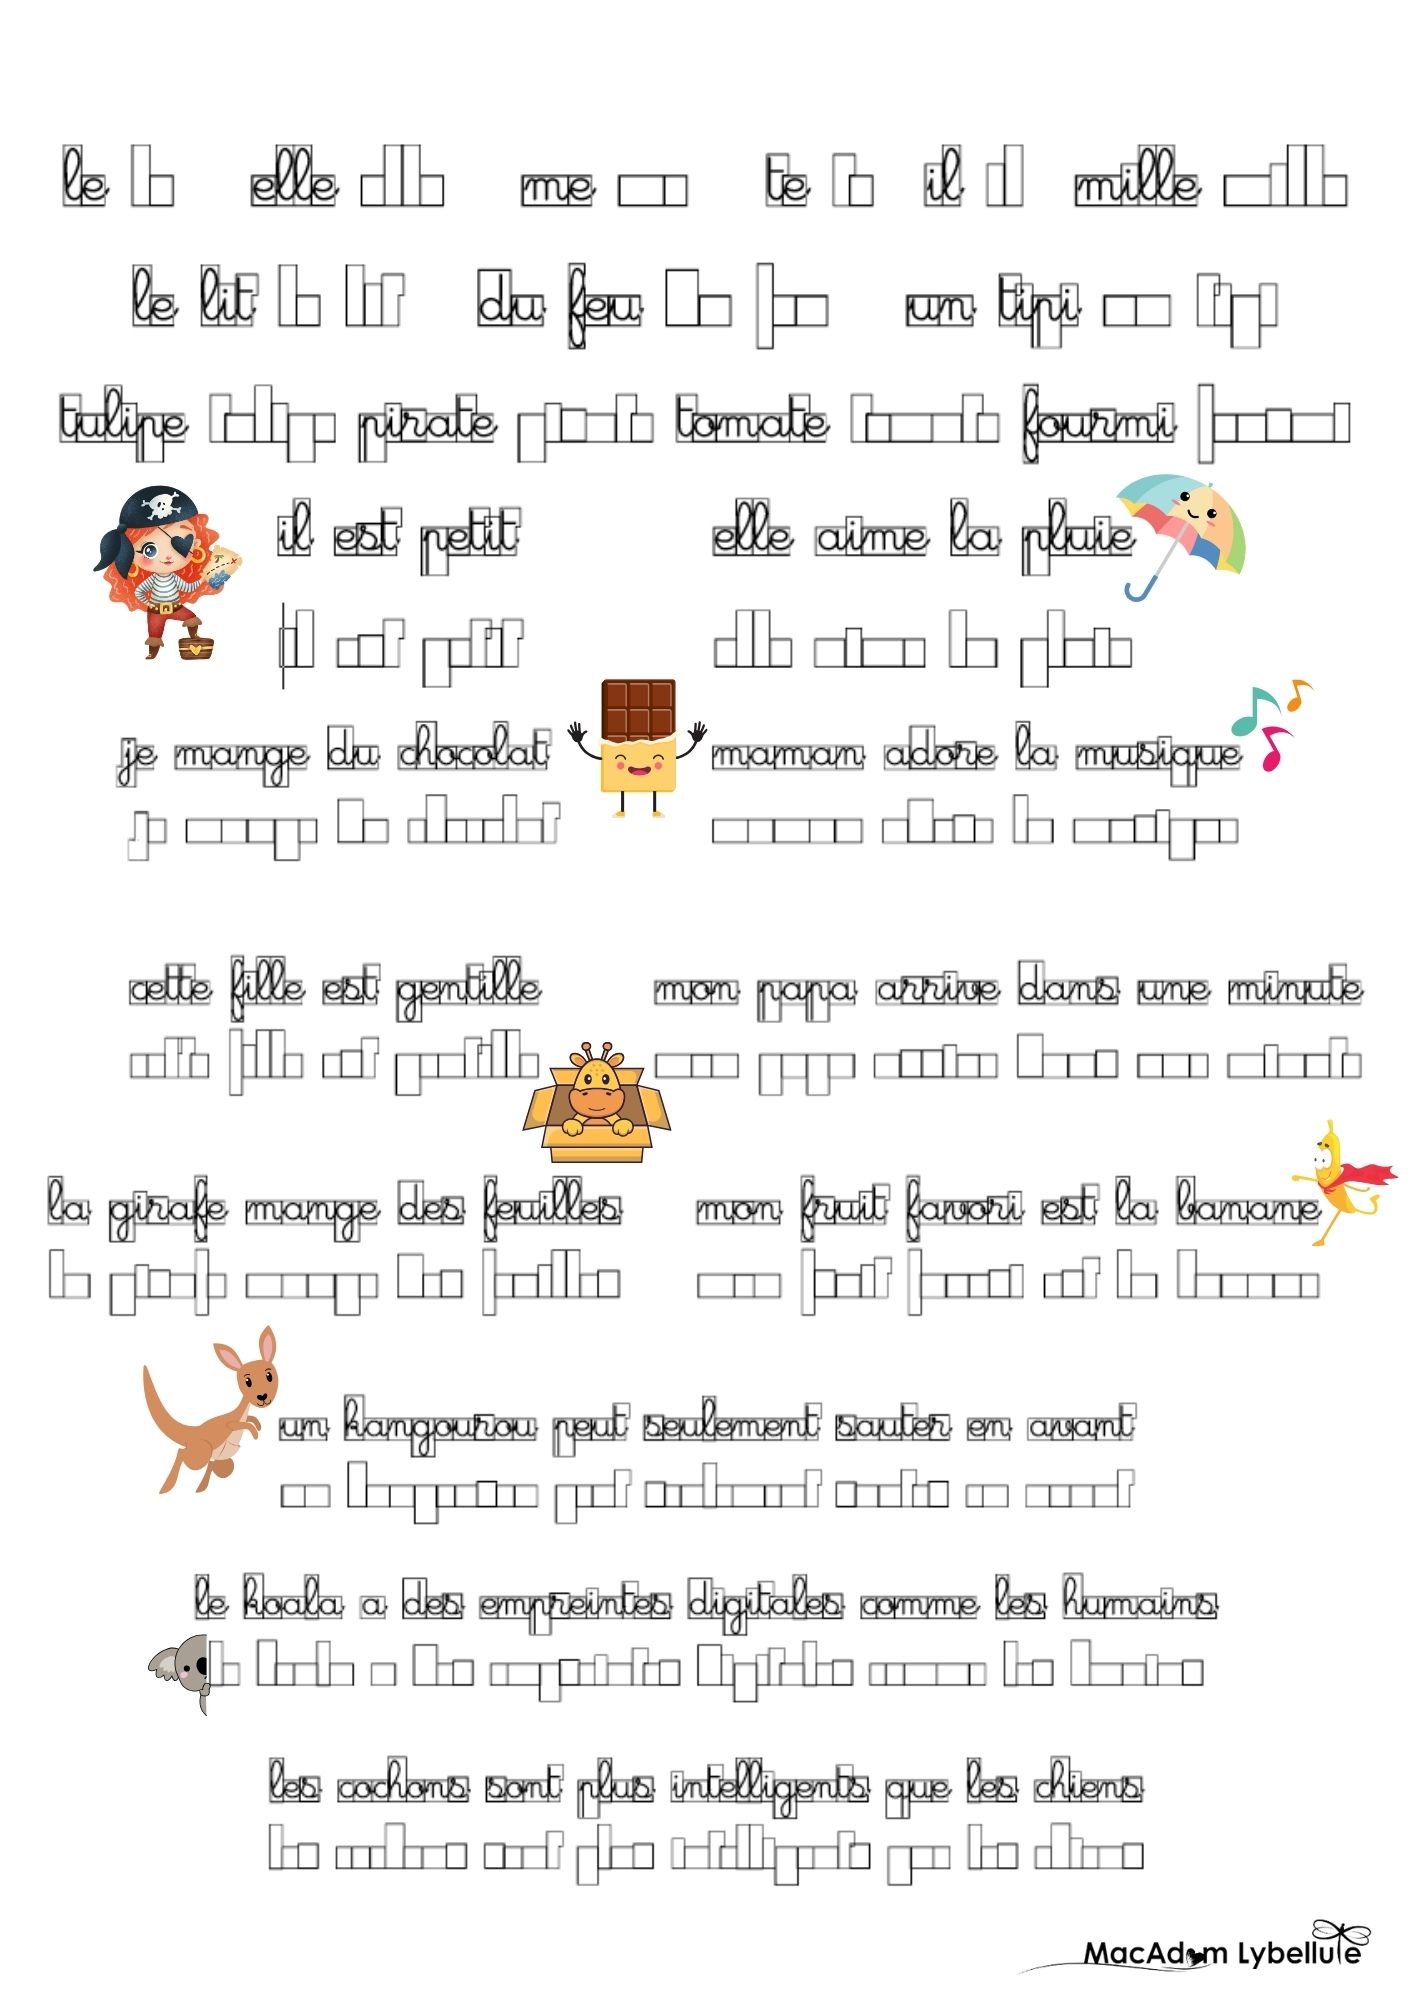 le elle me te il mille
le lit du feu un tipi
tulipe pirate tomate fourmi
il est petit elle aime la pluie
je mange du chocolat maman adore la musique
cette fille est gentille mon papa arrive dans une minute
la girafe mange des feuilles mon fruit favori est la banane
un kangourou peut seulement sauter en avant
le koala a des empreintes digitales comme les humains
les cochons sont plus intelligents que les chiens
MacAdam Lybellule